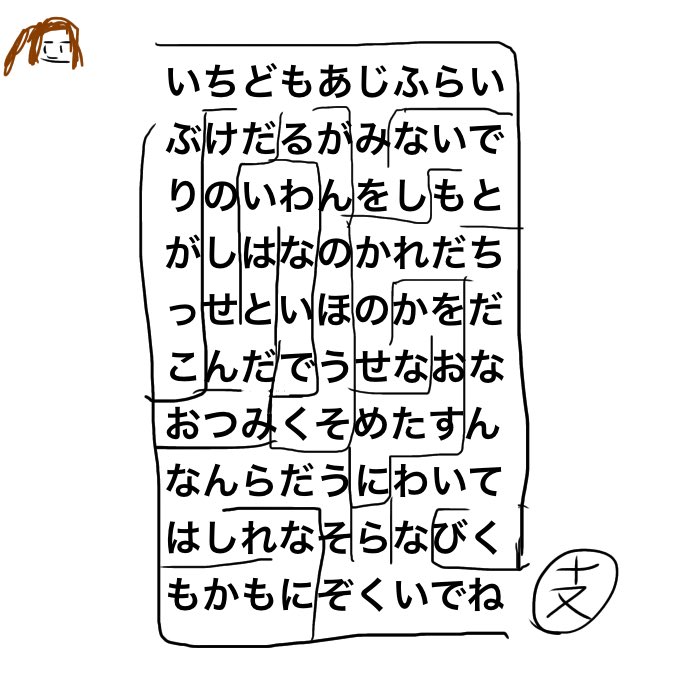 いちどもあじふらい
ぶけだるがみないで
りのいわんをしもと
がしはなのかれだち
っせといほのかをだ
こんだでうせなおな
おつみくそめたすん
なんらだうにわいて
はしれなそらなびく
もかもにぞくいでね
支